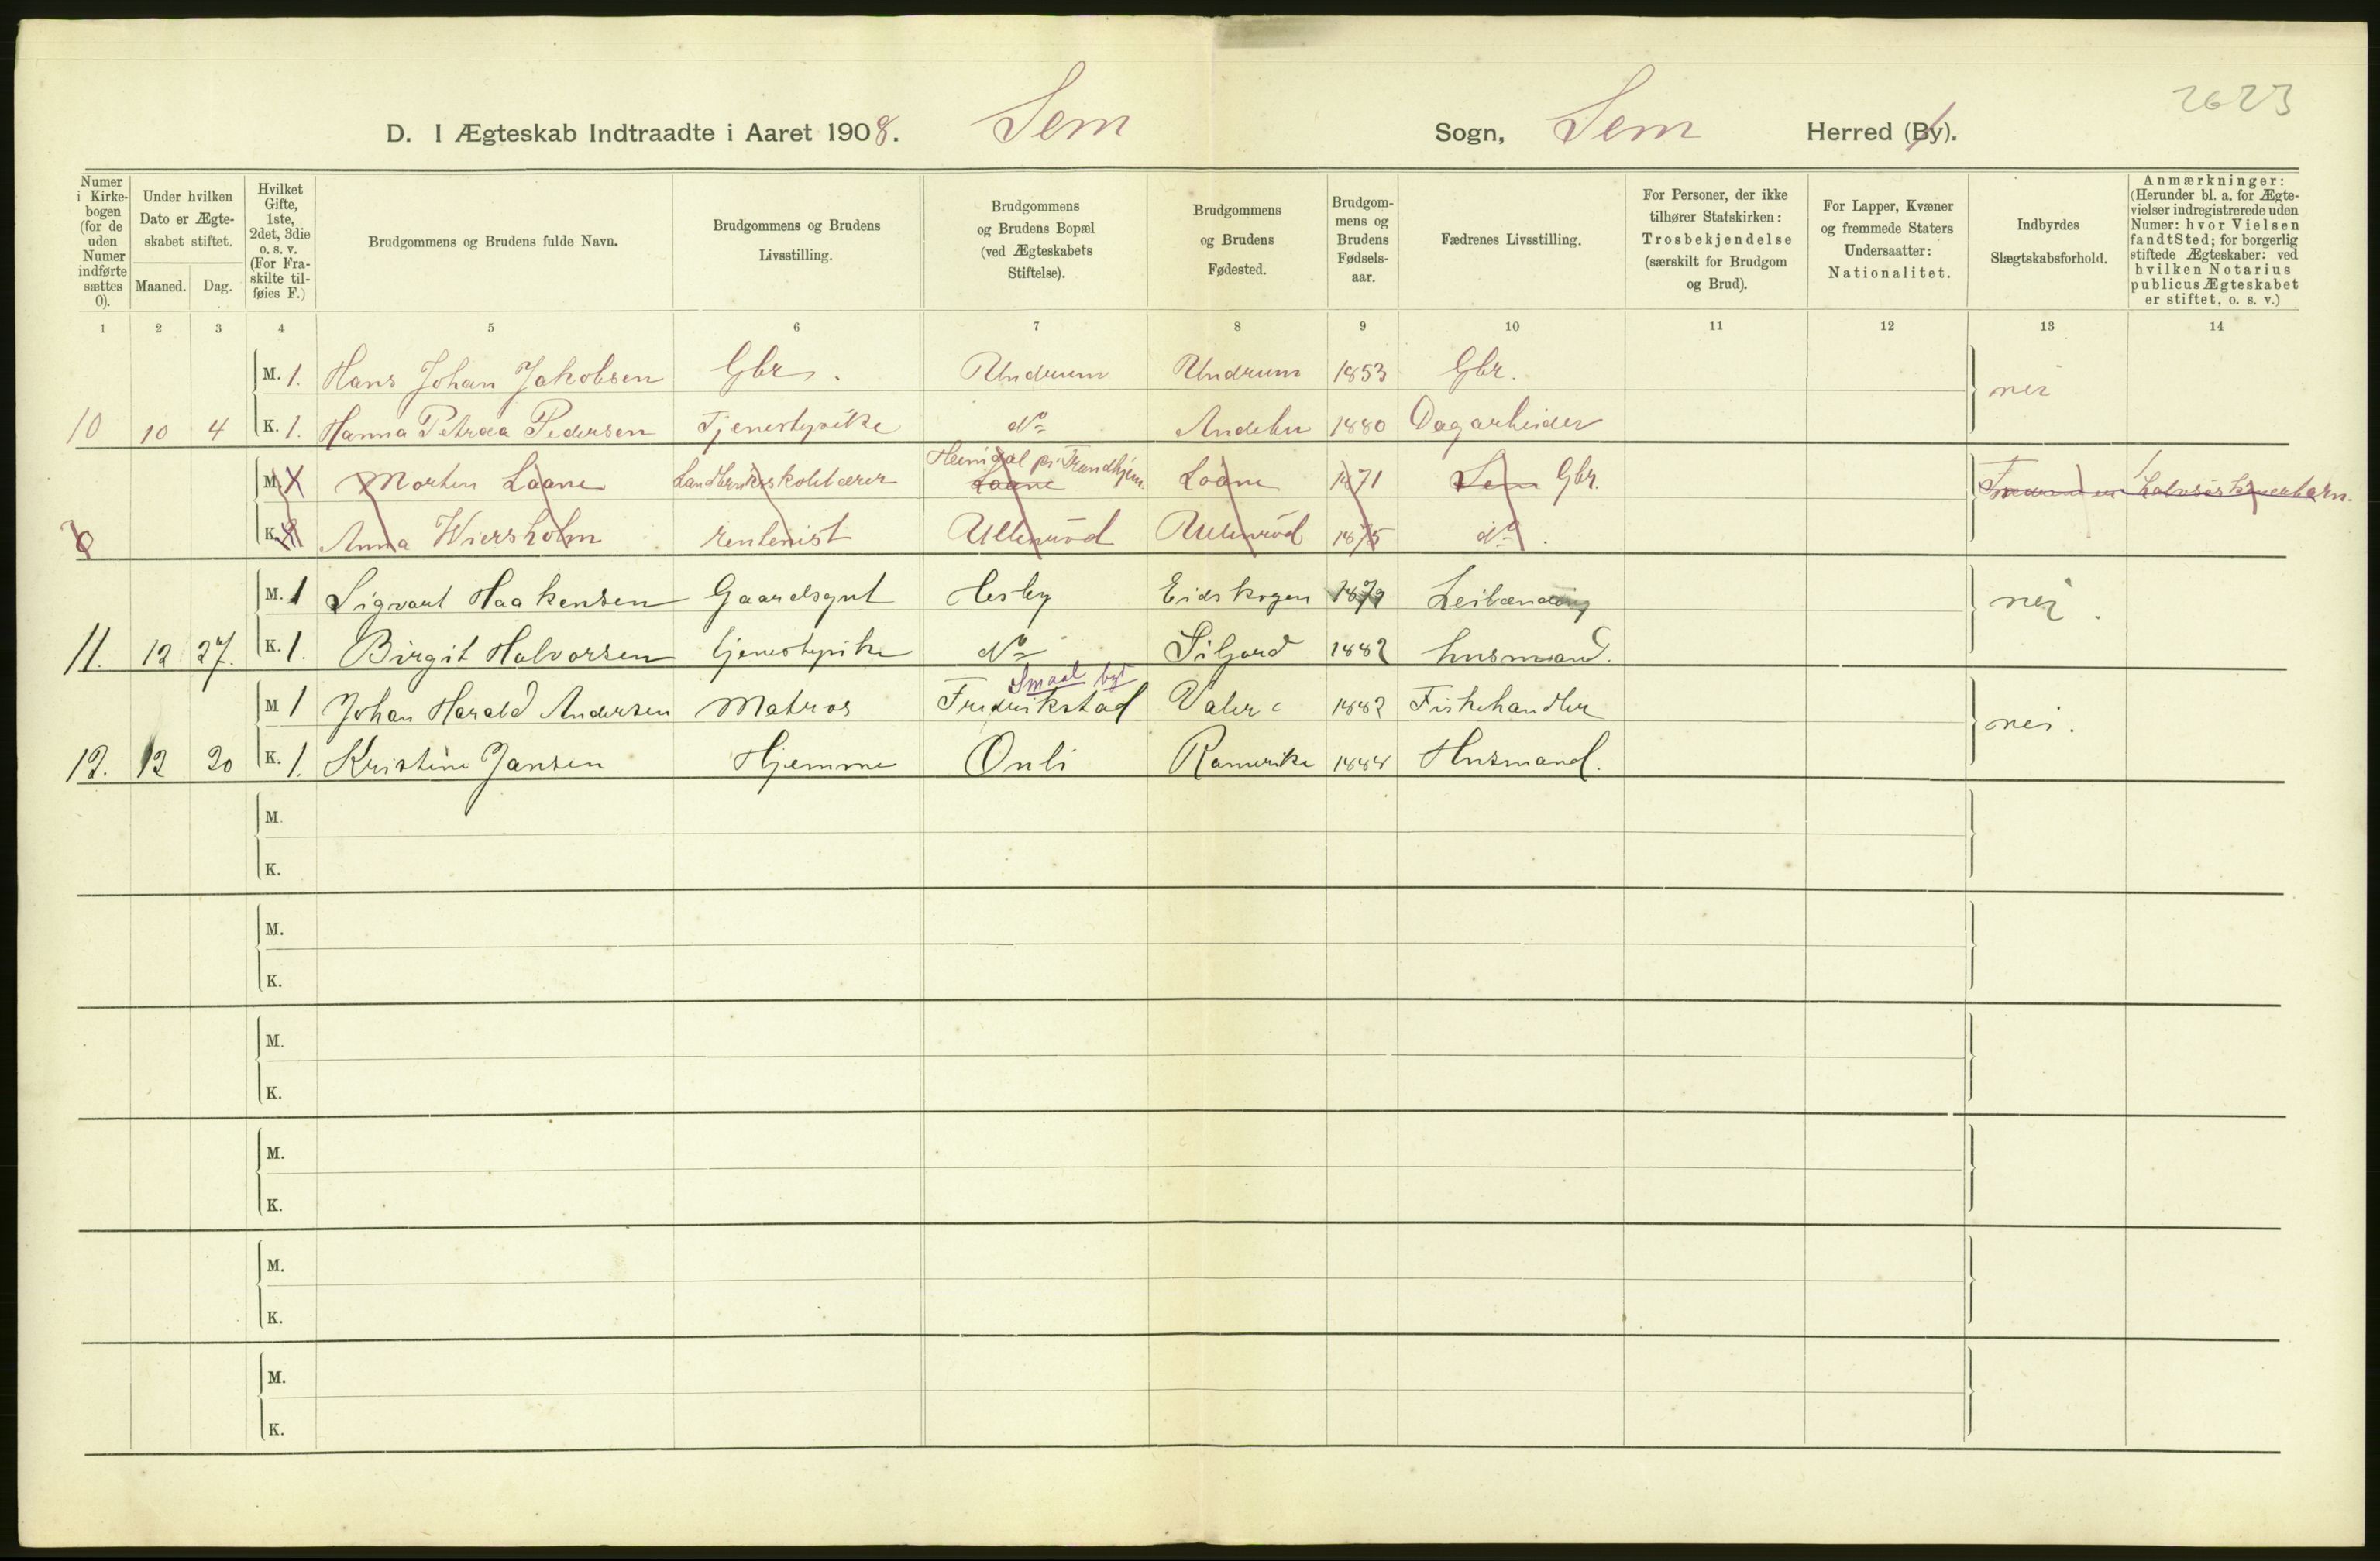 2623
D. I Ægteskab Indtraadte i Aaret 1908. Sem Sogn, Sem Herred (By).
Numer i Kirkebogen (for de uden Numer indførte sættes 0).
Under hvilken Dato er Ægteskabet stiftet.
Maaned. Dag.
Hvilket Gifte, 1ste, 2det, 3die o. s. v. (For Fraskilte tilføies F.)
Brudgommens og Brudens fulde Navn.
Brudgommens og Brudens Livsstilling.
Brudgommens og Brudens Bopæl (ved Ægteskabets Stiftelse).
Brudgommens og Brudens Fødested.
Brudgommens og Brudens Fødselsaar.
Fædrenes Livsstilling.
For Personer, der ikke tilhører Statskirken: Trosbekjendelse (særskilt for Brudgom og Brud).
For Lapper, Kvæner og fremmede Staters Undersaatter: Nationalitet.
Indbyrdes Slægtskabsforhold.
Anmærkninger: (Herunder bl. a. for Ægtevielser indregistrerede uden Numer: hvor Vielsen fandt Sted; for borgerlig stiftede Ægteskaber: ved hvilken Notarius publicus Ægteskabet er stiftet, o. s. v.)
1 2 3 4 5 6 7 8 9 10 11 12 13 14
M. 1. Hans Johan Jakobsen Gbr. Undrum Undrum 1853 Gbr. nei
10 10 4 K. 1. Hanna Petrea Pedersen Tjenestepike do Andebu 1880 Dagarbeider
M. Morten Laane Landbruksskolelærer Heimdal pr. Trondhjem Laane Laane 1871 Sem Gbr.
0 K. Anna Wiersholm rentenist Ullenrød Ullenrød 1875 do.
M. 1 Sigvart Haakensen Gaardsgut Hesby Eidskogen 1879 nei.
11. 12 27. K. 1. Birgit Halvorsen tjenestepike do Siljord 1882 husmand.
Smaal. by
M 1 Johan Harald Andersen Matros Fredrikstad Valer 1882 Fiskehandler nei.
12. 12 20 K. 1. Kristine Jansen Hjemme Onli Romerike 1884 Husmand.
M.
K.
M.
K.
M.
K.
M.
K.
M.
K.
M.
K.